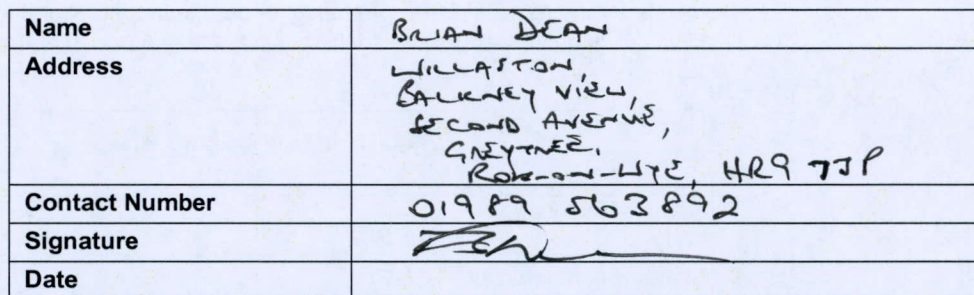 Name BRIAN DEAN
Address WILLASTON,
BALKNEY VIEW,
SECOND AVENUE,
GREYTREE,
ROSS-ON-WYE, HR9 7JP
Contact Number 01989 563892
Signature
Date